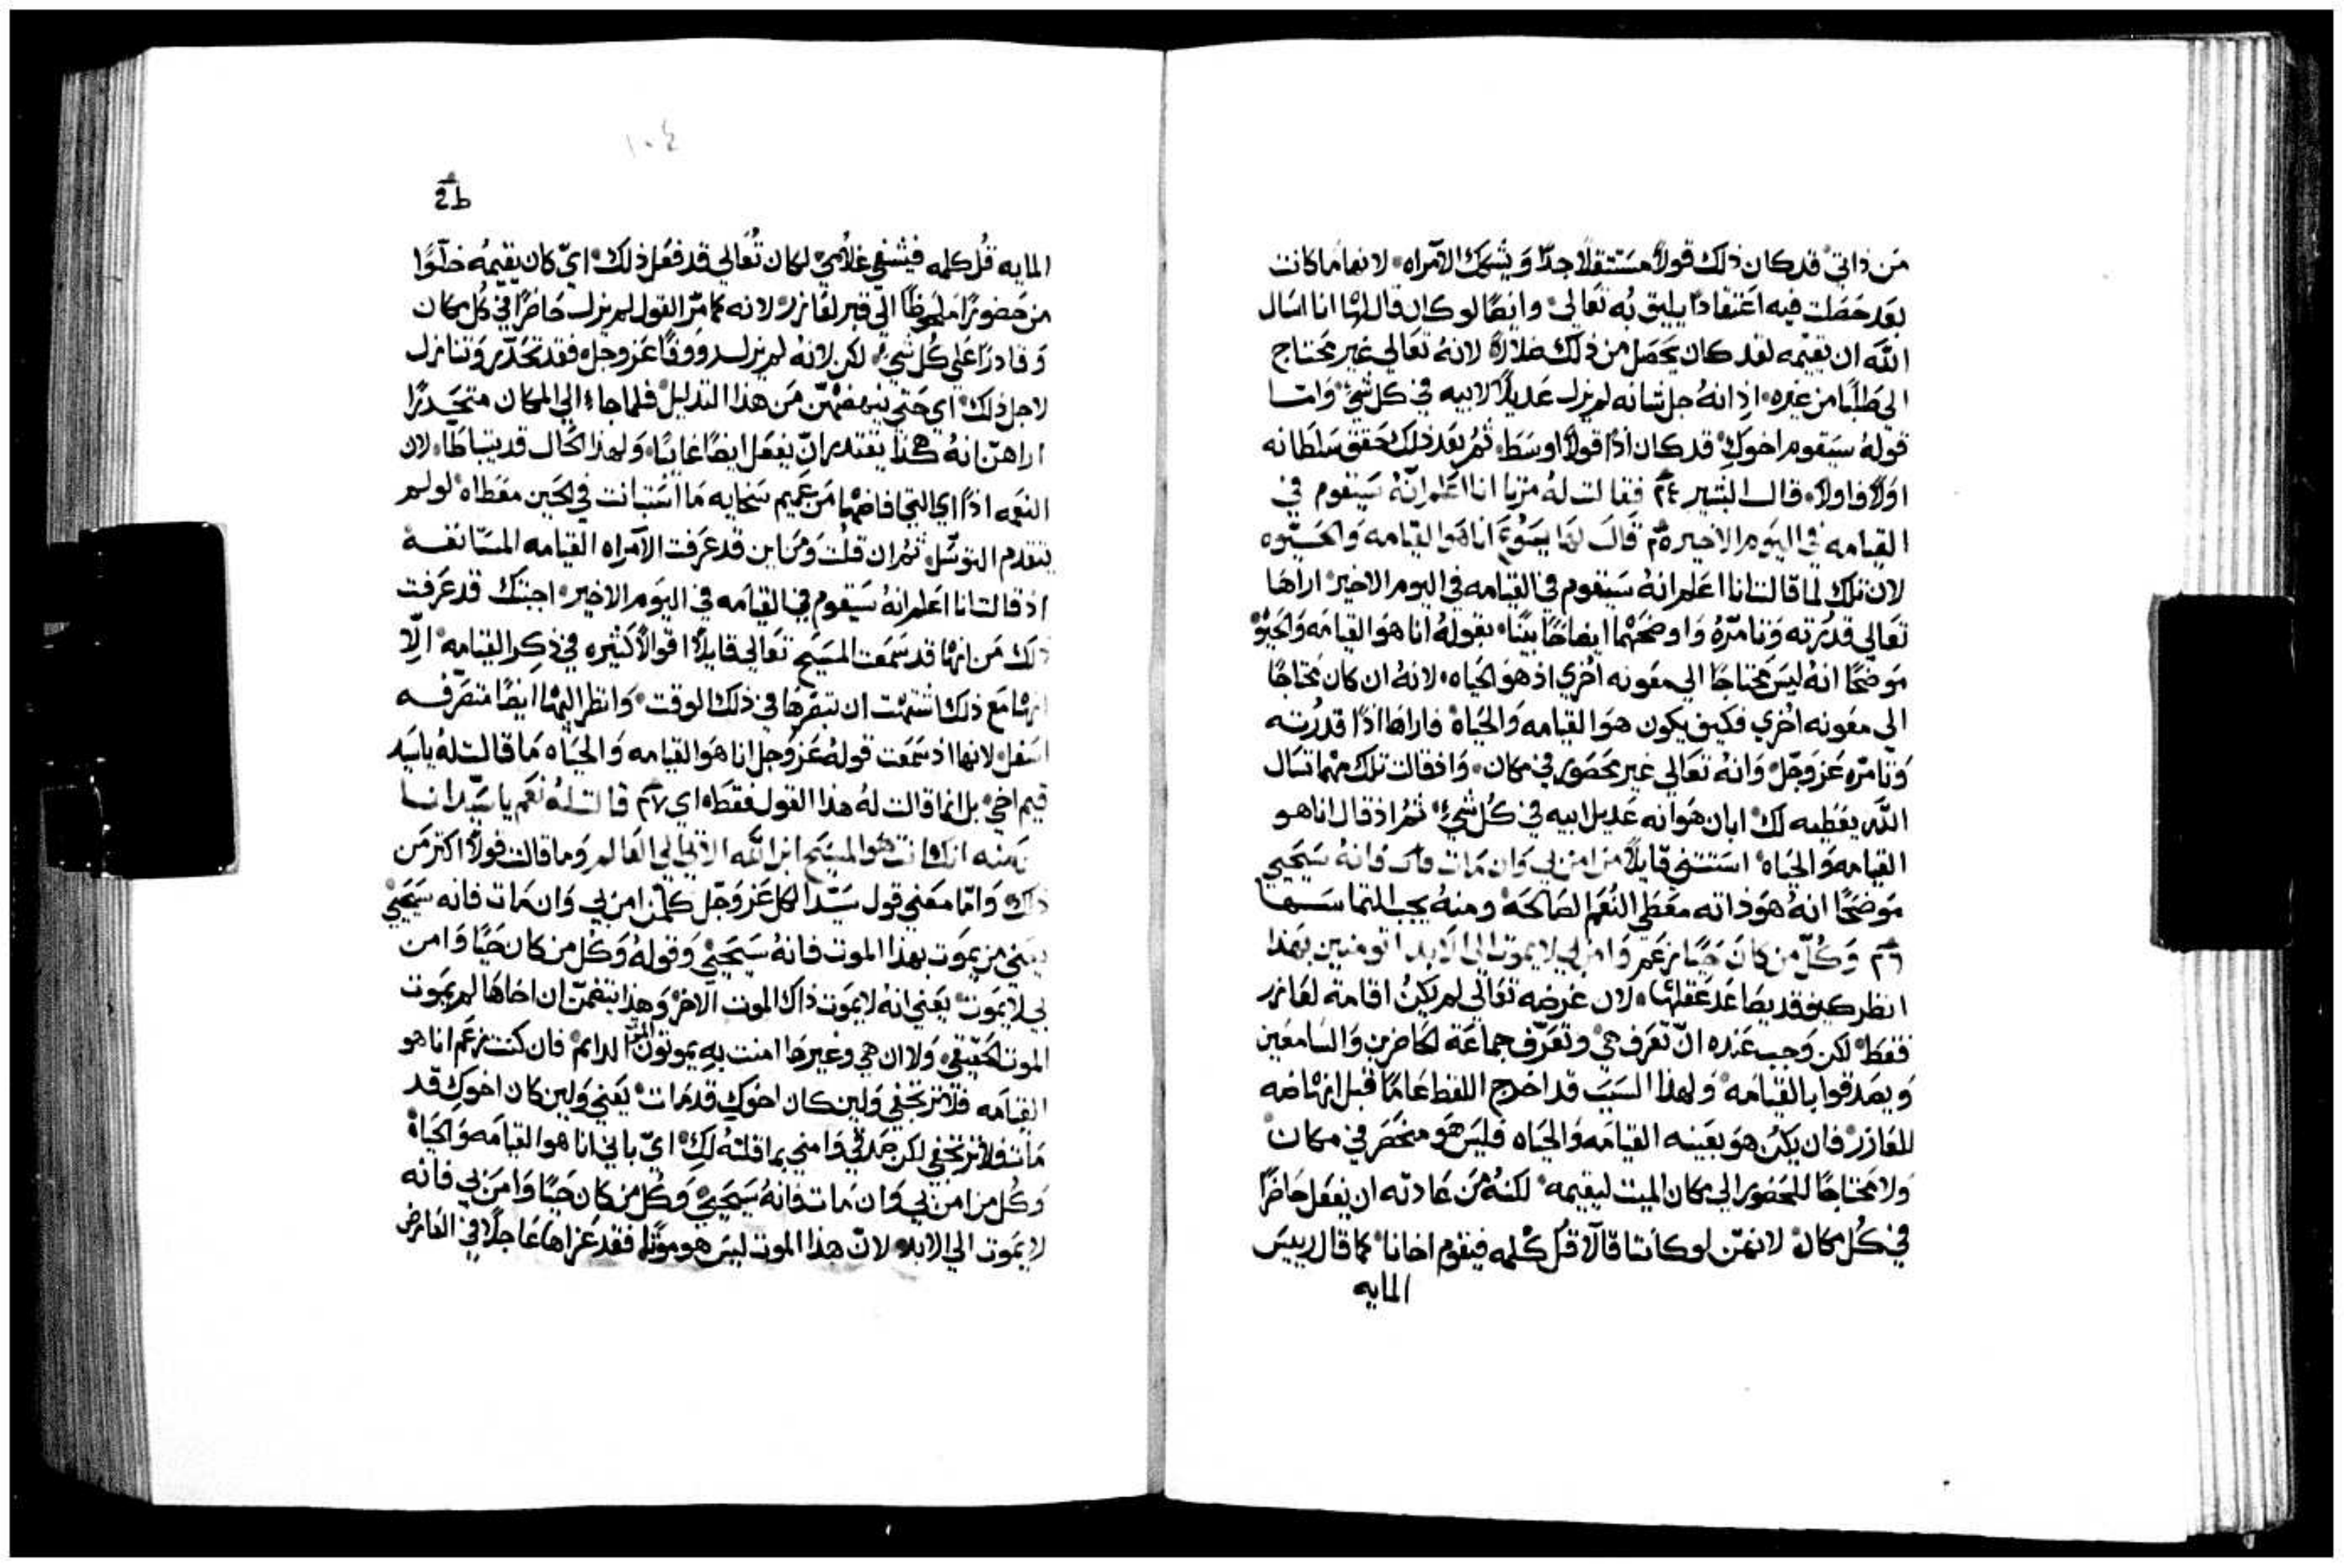 من ذاتي قد كان ذلك قولاً مستثقلاً جدًا ويشكك الامراه لانها ما كانت
بعد حصلت فيه اعتقادًا يليق به تعالي وايضًا لو كان قال لها انا اسال
الله ان يقيمه لقد كان يحصل من ذلك لانه تعالي غير محتاج
الي من غيره اذ انه جل شانه لم يزل عديلاً لابيه في كل شي واما
قوله سيقوم اخوكِ قد كان اذًا قولاً اوسط ثم بعد ذلك حقق سلطانه
اولاً فاولاً قال البشير ٢٤ فقالت له مرتا انا اعلم انه سيقوم في
القيامه في اليوم الاخير ٢٥ قال لها يسوع انا هو القيامه والحيوه
لان تلك لما قالت انا اعلم انه سيقوم في القيامه في اليوم الاخير اراها
تعالي قدرته وتامّره واوضحهما ايضاحًا بيّنًا بقوله انا هو القيامه والحيوه
موضحًا انه ليس محتاجًا الي معونه اخري اذ هو الحياه لانه ان كان محتاجًا
الي معونه اخري فكيف يكون هو القيامه والحياة فاراها اذًا قدرته
وتامّره عز وجل وانه تعالي غير محصور في مكان واذ قالت تلك مهما تسال
الله يعطيه لك ابان هو انه عديل ابيه في كل شيء ثم اذ قال انا هو
القيامه والحياة استثني قايلاً من امن بي وان مات فانه سيحيي
موضحًا انه هو ذاته معطي النعم الصالحه ومنه يجب التماسها
٢٦ وكل من كان حيًا وامن بي لا يموت الي الابد اتومنين بهذا
انظر كيف قد عقلها لان غرضه تعالي لم يكن اقامة لعازر
فقط لكن وجب عنده ان تعرف هي وتعرّف جماعة الحاضرين والسامعين
ويصدقوا بالقيامه ولهذا السبب قد اخرج اللفظ عامًا قبل انهاضه
للعازر فان يكن هو بعينه القيامه والحياه فليس هو منحصر في مكان
ولا محتاجًا للحضور الي مكان الميت ليقيمه لكنه من عادته ان يفعل حاضرًا
في كل مكان لانهن لو كانتا قالا قُل كلمه فيقوم اخانا كما قال رييس
المايه
١٠٤
المايه قُل كلمه فيشفي غلامي لكان تعالي قد فعل ذلك اي كان يقيمه خلوًا
من حضوره الي قبر لعازر لانه كما مرّ القول لم يزل حاضرًا في كل مكان
وقادرًا علي كل شيء لكن لانه لم يزل رووفًا عز وجل فقد تحدّر وتنازل
لاجل ذلك اي حتي ينهضهن من هذا التدليل فلما جاء الي المكان متحدرًا
اراهنّ انه هكذا يقتدر ان يفعل ايضًا غايبًا ولهذا الحال قد يتباطا لان
النعمه اذًا اي التي افاضها من عميم سخايه ما استبانت في الحين معطاه لو لم
يتقدم التوسّل ثم ان قلت ومن اين قد عرفت الامراه القيامه
اذ قالت انا اعلم انه سيقوم في القيامه في اليوم الاخير اجبتك قد عرفت
ذلك من انها قد سمعت المسيح تعالي قايلاً اقوالاً كثيره في ذكر القيامه الّا
انها مع ذلك ان تبصرها في ذلك الوقت وانظر اليها ايضًا متصرفه
اسفل لانها اذ سمعت قوله عز وجل انا هو القيامه والحياه ما قالت له يا سيد
قيم اخي بل انما قالت له هذا القول فقط اي ٢٧ قالت له نعم يا سيد انا
مومنه انك انت هو المسيح ابن الله الاتي الي العالم وما قالت قولاً اكثر من
ذلك واما معني قول سيد الكل عز وجل كلمن امن بي وان مات فانه سيحيي
يعني من يموت بهذا الموت فانه سيحيي وقوله وكل من كان حيًا وامن
بي لا يموت يعني انه لا يموت ذاك الموت الاخر وهذا يتضمن ان اخاها لم يموت
الموت الحقيقي ولا ان هي وغيرها امنت به يموتون الموت الدايم فان كنت نزعم انا هو
القيامه فلا تزتجفي ولين كان اخوكِ قد مات يعني ولين كان اخوكِ قد
مات فلا تزتجفي لكن صدقي وامني بما قلته لكِ اي باني انا هو القيامه والحياة
وكل من امن بي وان مات فانه سيحيي وكل من كان حيًا وامن بي فانه
لا يموت الي الابد لانّ هذا الموت ليس هو موتًا فقد عزاها عاجلاً في العارض